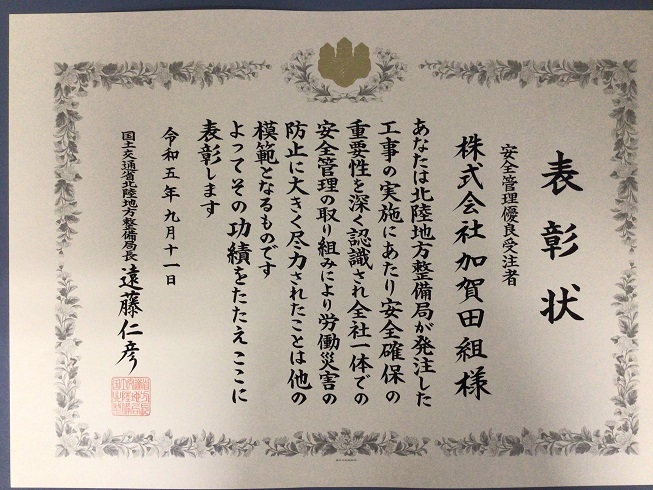 表彰状
安全管理優良受注者
株式会社加賀田組様
あなたは北陸地方整備局が発注した
工事の実施にあたり安全確保の
重要性を深く認識され全社一体での
安全管理の取り組みにより労働災害の
防止に大きく尽力されたことは他の
模範となるものです
よってその功績をたたえここに
表彰します
令和五年九月十一日
国土交通省北陸地方整備局長 遠藤仁彦